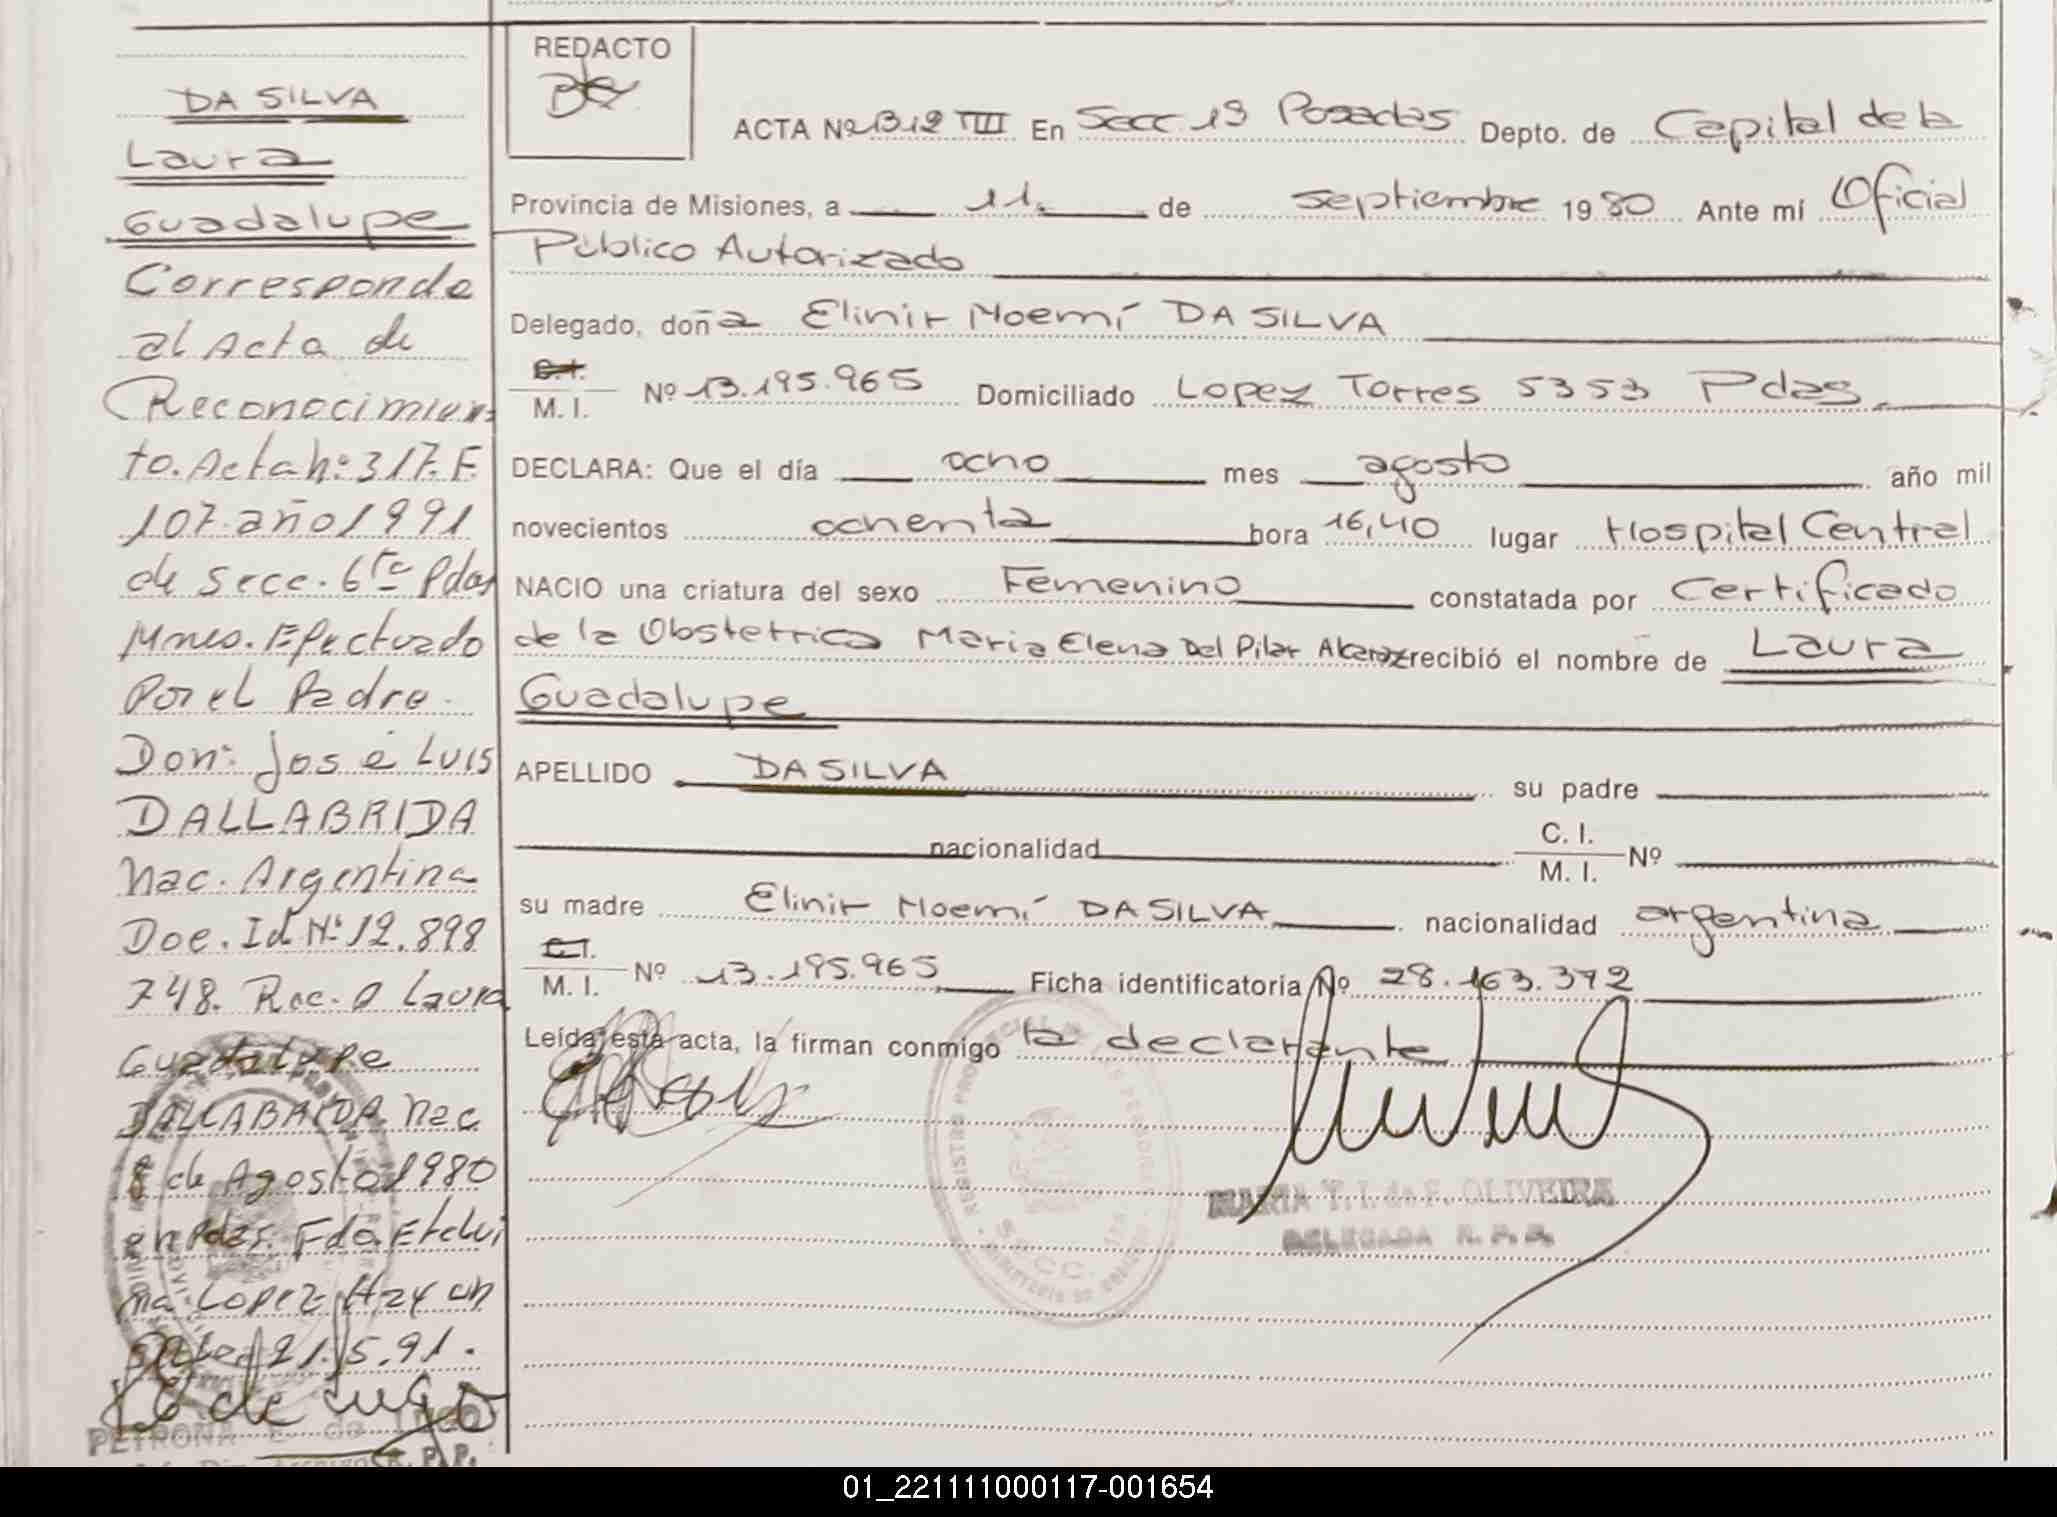 DA SILVA
Laura
Guadalupe
Corresponde
al Acta de
Reconocimien
to. Acta nº: 317. F.
107. año 1991
de Secc. 6ta Pdas
Mnes. Efectuado
Por el Padre.
Don: José Luis
DALLABRIDA
Nac. Argentina
Doc. Id Nº: 12.898
748. Rec. a Laura
Guadalupe
DALLABRIDA. Nac
8 de Agosto 1980
en Pdas. Fdo. Etelvi
na Lopez
21.5.91.
de Lugo
PETRONA de LUGO
R. P. P.
REDACTO
ACTA Nº 1312 TIII En Secc. 13 Posadas Depto. de Capital de la
Provincia de Misiones, a 11. de septiembre 1980 Ante mí Oficial
Público Autorizado
Delegado, doña Elinir Noemí DA SILVA
C.I.
M. I. Nº 13.195.965 Domiciliado Lopez Torres 5353 Pdas.
DECLARA: Que el día ocho mes agosto año mil
novecientos ochenta hora 16,40 lugar Hospital Central
NACIO una criatura del sexo Femenino constatada por Certificado
de la Obstetrica Maria Elena Del Pilar Alcaraz recibió el nombre de Laura
Guadalupe
APELLIDO DA SILVA su padre
nacionalidad C. I.
M. I. Nº
su madre Elinir Noemí DA SILVA nacionalidad argentina
C.I.
M. I. Nº 13.195.965 Ficha identificatoria Nº 28.163.372
Leída esta acta, la firman conmigo la declarante
REGISTRO PROVINCIAL DE LAS PERSONAS
SECC. 13
MARIA T. I. de F. OLIVEIRA
DELEGADA R. P. P.
01_221111000117-001654